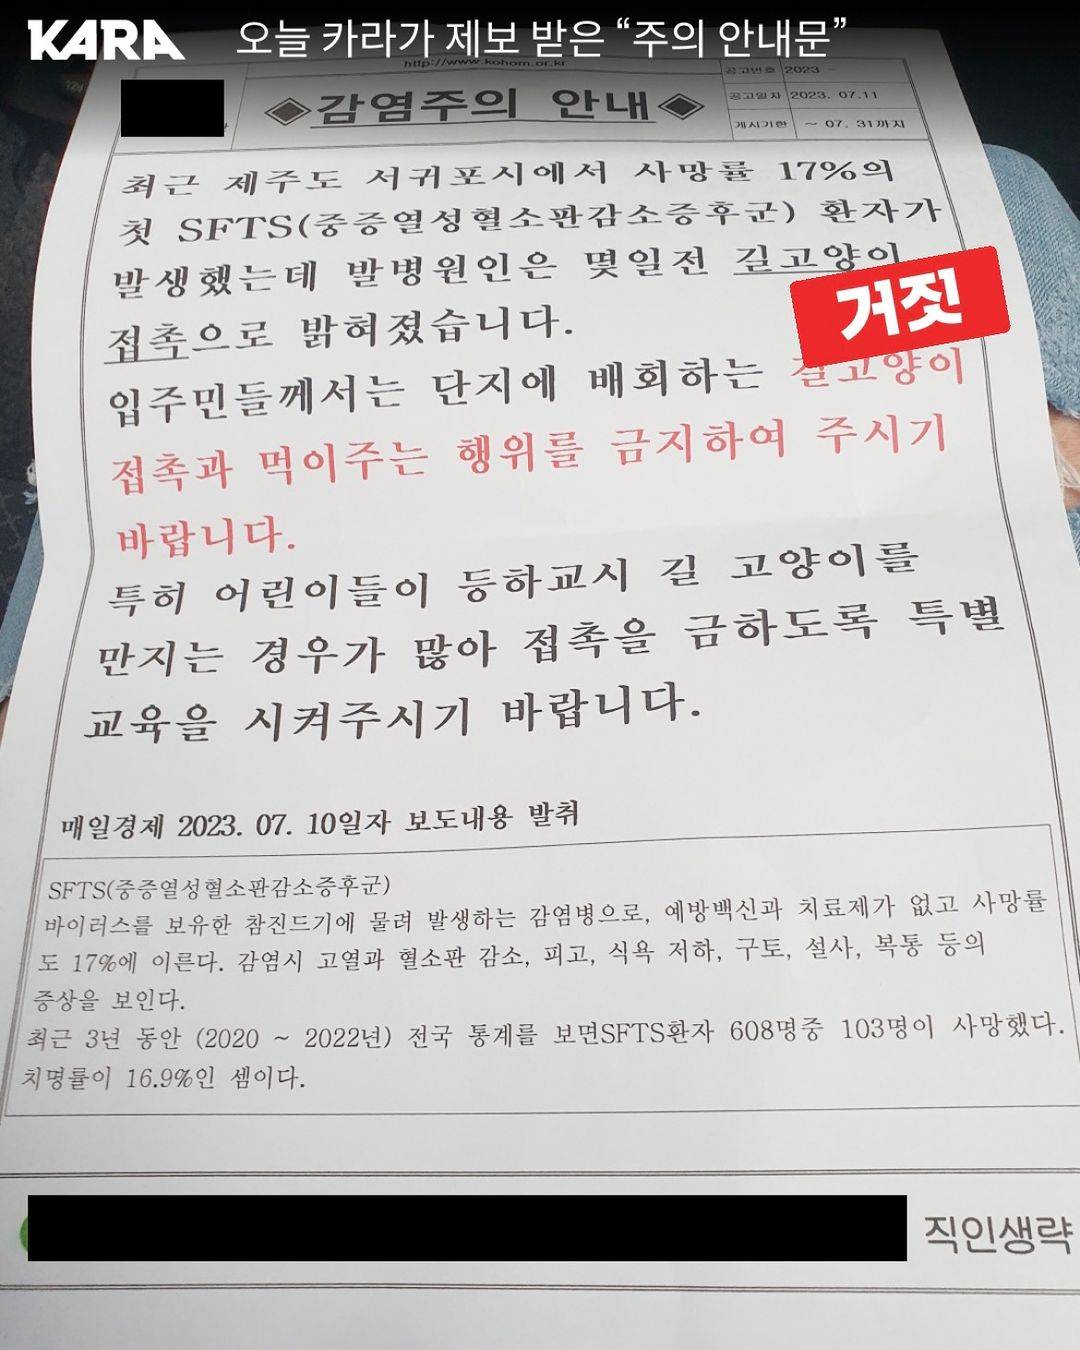 KARA 오늘 카라가 제보 받은 “주의 안내문”
http://www.kohom.or.kr
공고번호 2023 -
◈감염주의 안내◈
공고일자 2023. 07.11
게시기한 ~ 07. 31까지
최근 제주도 서귀포시에서 사망률 17%의
첫 SFTS(중증열성혈소판감소증후군) 환자가
발생했는데 발병원인은 몇일전 길고양이
거짓
접촉으로 밝혀졌습니다.
입주민들께서는 단지에 배회하는 길고양이
접촉과 먹이주는 행위를 금지하여 주시기
바랍니다.
특히 어린이들이 등하교시 길 고양이를
만지는 경우가 많아 접촉을 금하도록 특별
교육을 시켜주시기 바랍니다.
매일경제 2023. 07. 10일자 보도내용 발취
SFTS(중증열성혈소판감소증후군)
바이러스를 보유한 참진드기에 물려 발생하는 감염병으로, 예방백신과 치료제가 없고 사망률
도 17%에 이른다. 감염시 고열과 혈소판 감소, 피고, 식욕 저하, 구토, 설사, 복통 등의
증상을 보인다.
최근 3년 동안 (2020 ~ 2022년) 전국 통계를 보면SFTS환자 608명중 103명이 사망했다.
치명률이 16.9%인 셈이다.
직인생략